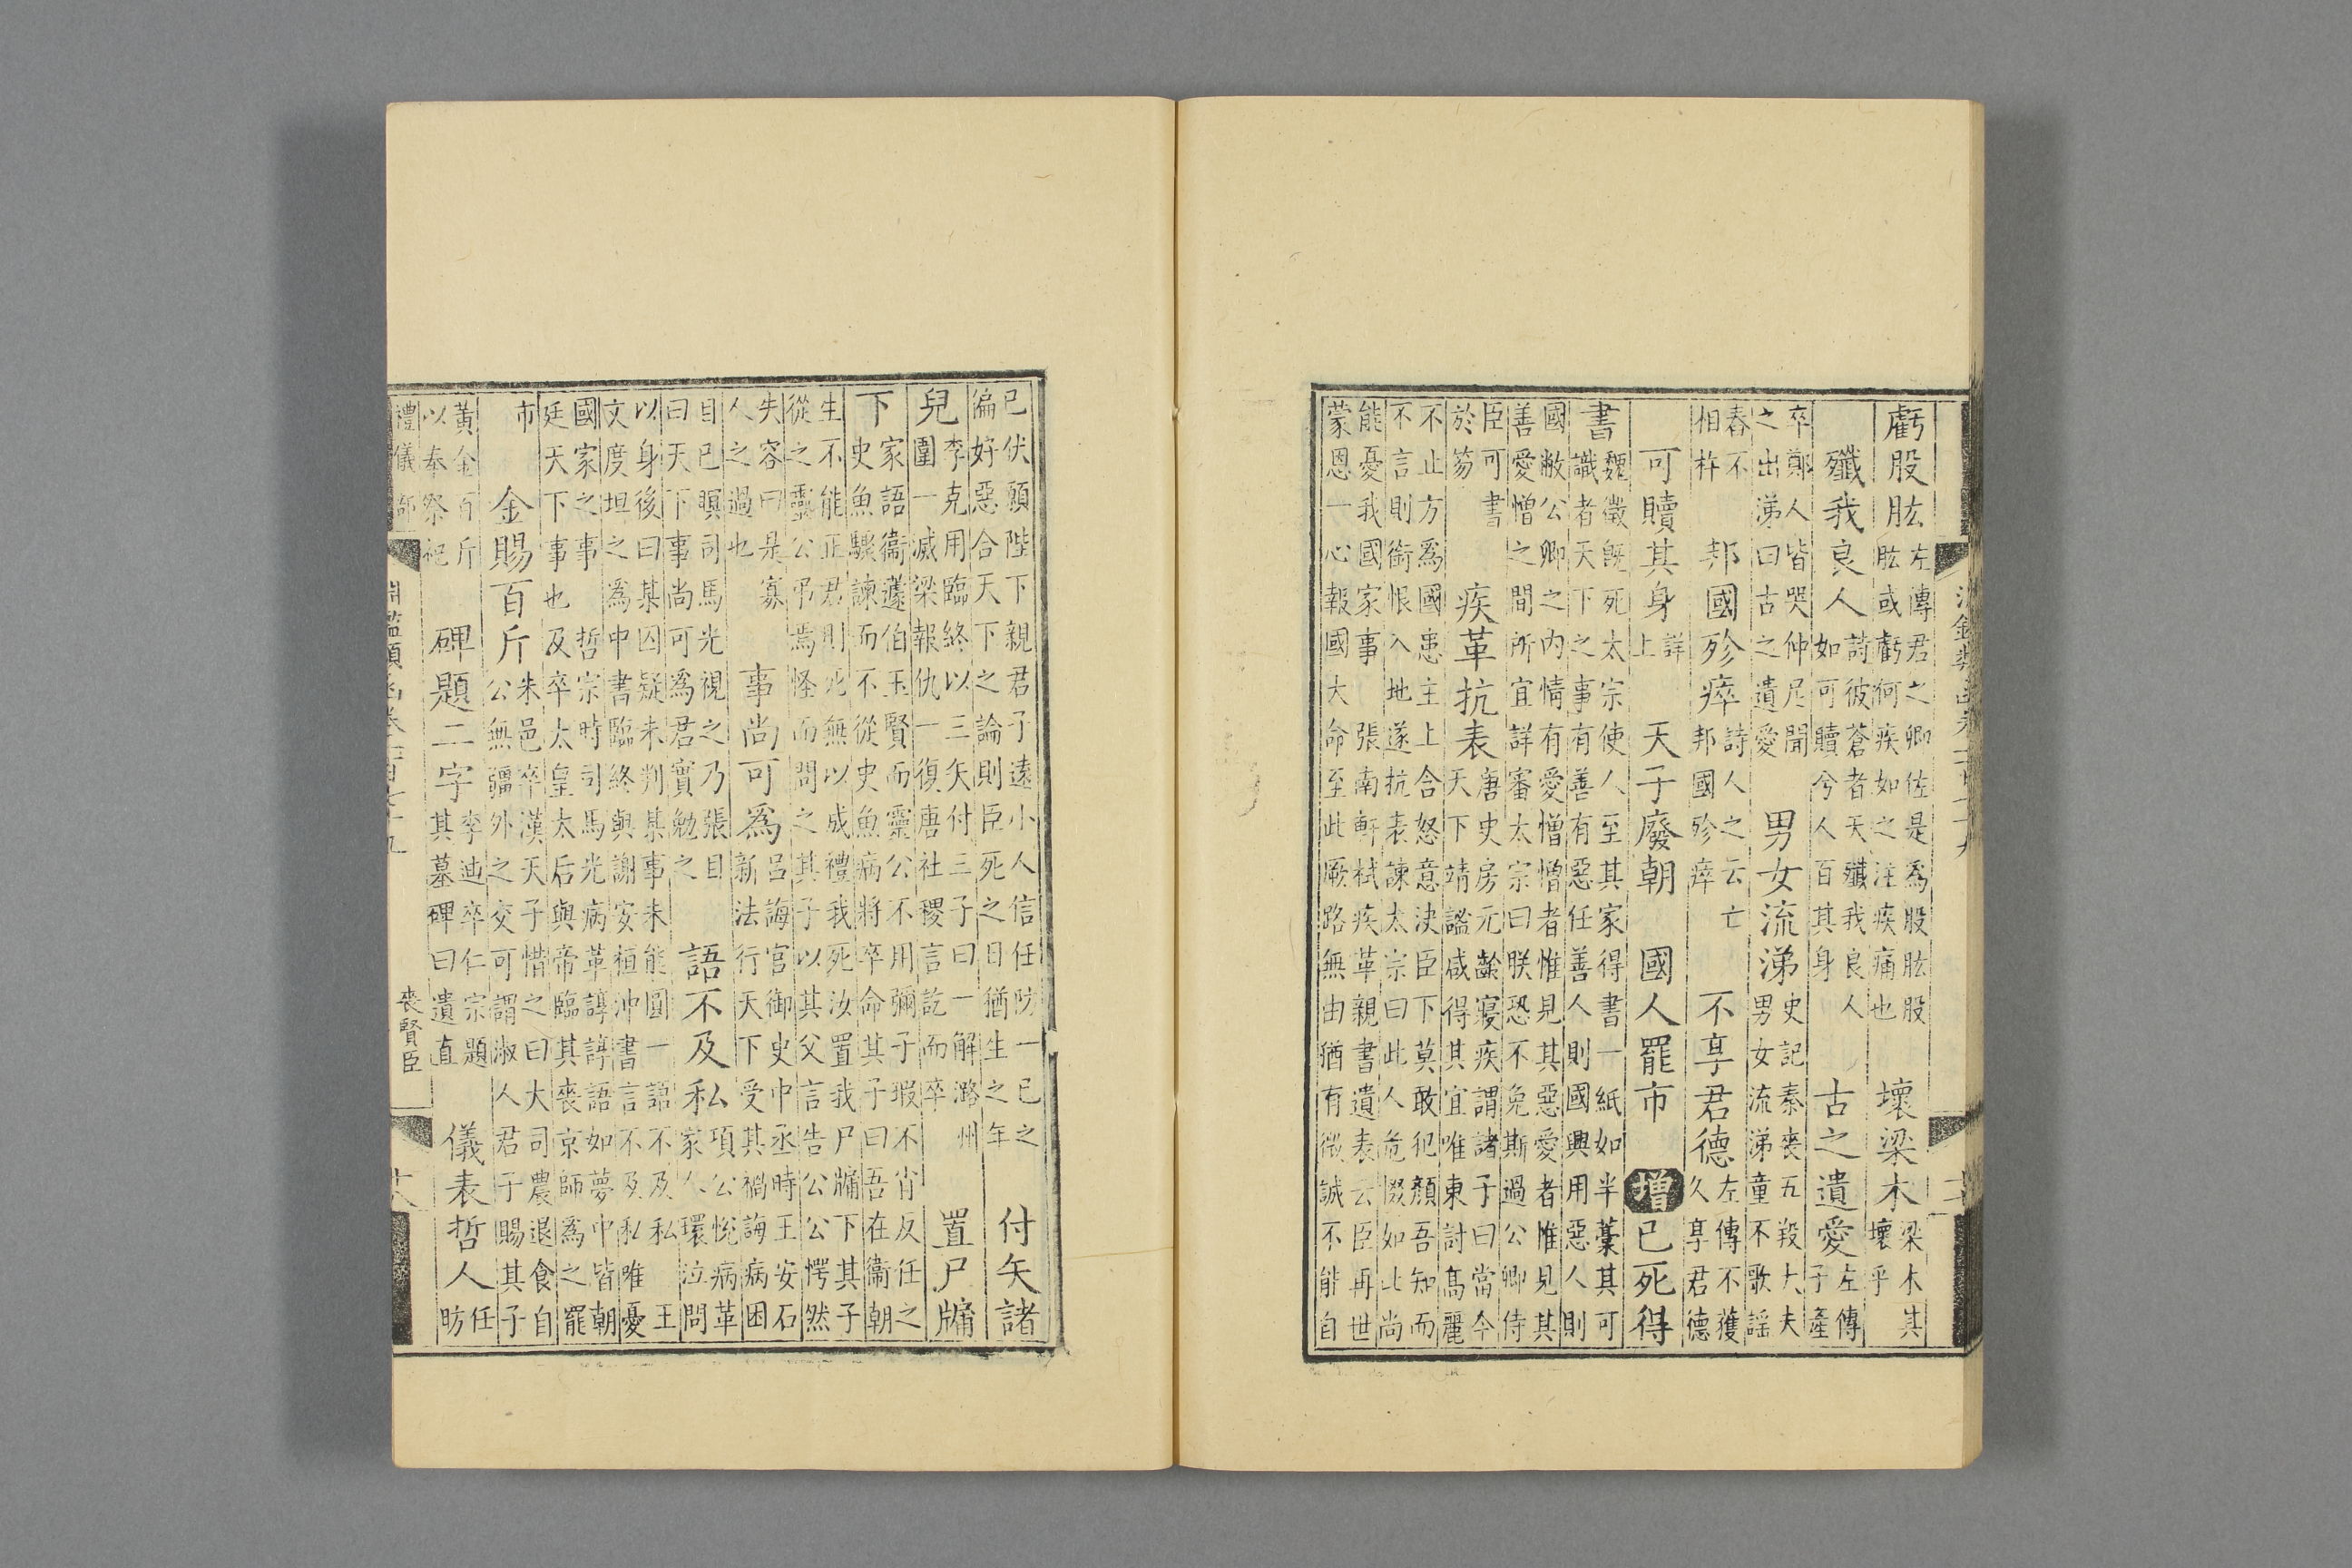 虧股肱左傳君之卿佐是為股肱股
肱或虧何疾如之注疾痛也
壞梁木梁木其
壞乎
殲我良人詩彼蒼者天殲我良人
如可贖兮人百其身
古之遺愛左傳
子產
卒鄭人皆哭仲尼聞
之出涕曰古之遺愛
男女流涕史記秦喪五羖大夫
男女流涕童不歌謡
舂不
相杵
邦國殄瘁詩人之云亡
邦國殄瘁
不享君德左傳不獲
久享君德
可贖其身詳
上
天子廢朝
國人罷市
增已死得
書魏徵旣死太宗使人至其家得書一紙如半藁其可
識者天下之事有善有惡任善人則國興用惡人則
國敝公卿之內情有愛憎憎者惟見其惡愛者惟見其
善愛憎之間所宜詳審太宗曰朕恐不免斯過公卿侍
臣可書
於笏
疾革抗表唐史房元齡寢疾謂諸子曰當今
天下靖謐咸得其宜唯東討高麗
不止方為國患主上含怒意決臣下莫敢犯顏吾知而
不言則銜恨入地遂抗表諫太宗曰此人危惙如此尚
能憂我國家事張南軒栻疾革親書遺表云臣再世
蒙恩一心報國大命至此厥路無由猶有微誠不能自
已伏願陛下親君子遠小人信任防一已之
偏好惡合天下之論則臣死之日猶生之年
付矢諸
兒李克用臨終以三矢付三子曰一解潞州
圍一滅梁報仇一復唐社稷言訖而卒
置尸牖
下家語衞蘧伯玉賢而靈公不用彌子瑕不肖反任之
史魚驟諫而不從史魚病將卒命其子曰吾在衞朝
生不能正君則死無以成禮我死汝置我尸牖下其子
從之靈公弔焉怪而問之其子以其父言告公公愕然
失容曰是寡
人之過也
事尚可為呂誨官御史中丞時王安石
新法行天下受其禍誨病困
目已瞑司馬光視之乃張目
曰天下事尚可為君實勉之
語不及私項公悅病革
家人環泣問
以身後曰某囚疑未判某事未能圓一語不及私王
文度坦之為中書臨終與謝安桓沖書言不及私唯憂
國家之事哲宗時司馬光病革諄諄語如夢中皆朝
廷天下事也及卒太皇太后與帝臨其喪京師為之罷
市
金賜百斤朱邑卒漢天子惜之曰大司農退食自
公無疆外之交可謂淑人君子賜其子
黃金百斤
以奉祭祀
碑題二字李迪卒仁宗題
其墓碑曰遺直
儀表哲人任
昉
禮儀師
淵鑑類函卷
喪賢臣